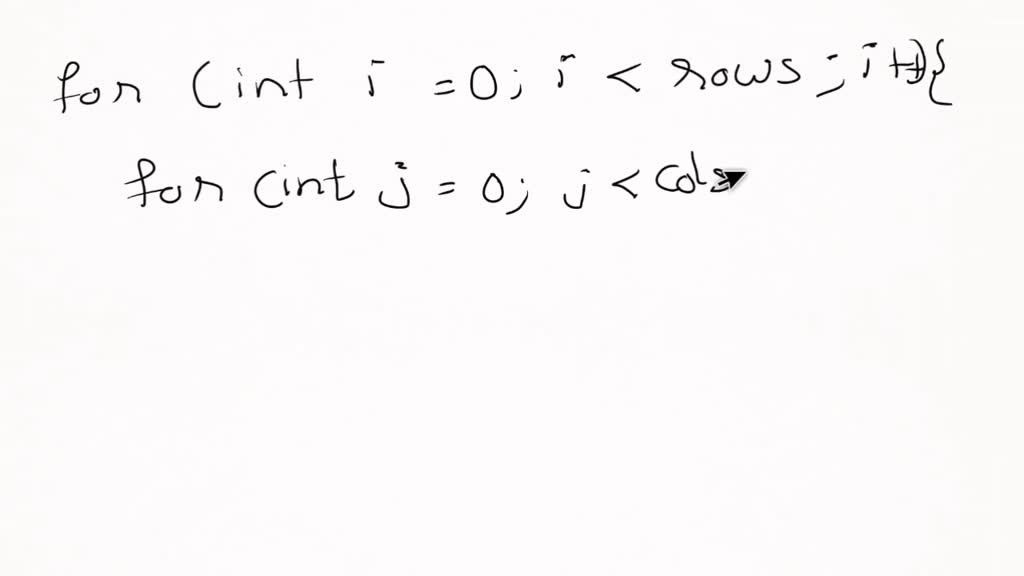 for (int i = 0; i < rows; i++){
for (int j = 0; j < cols